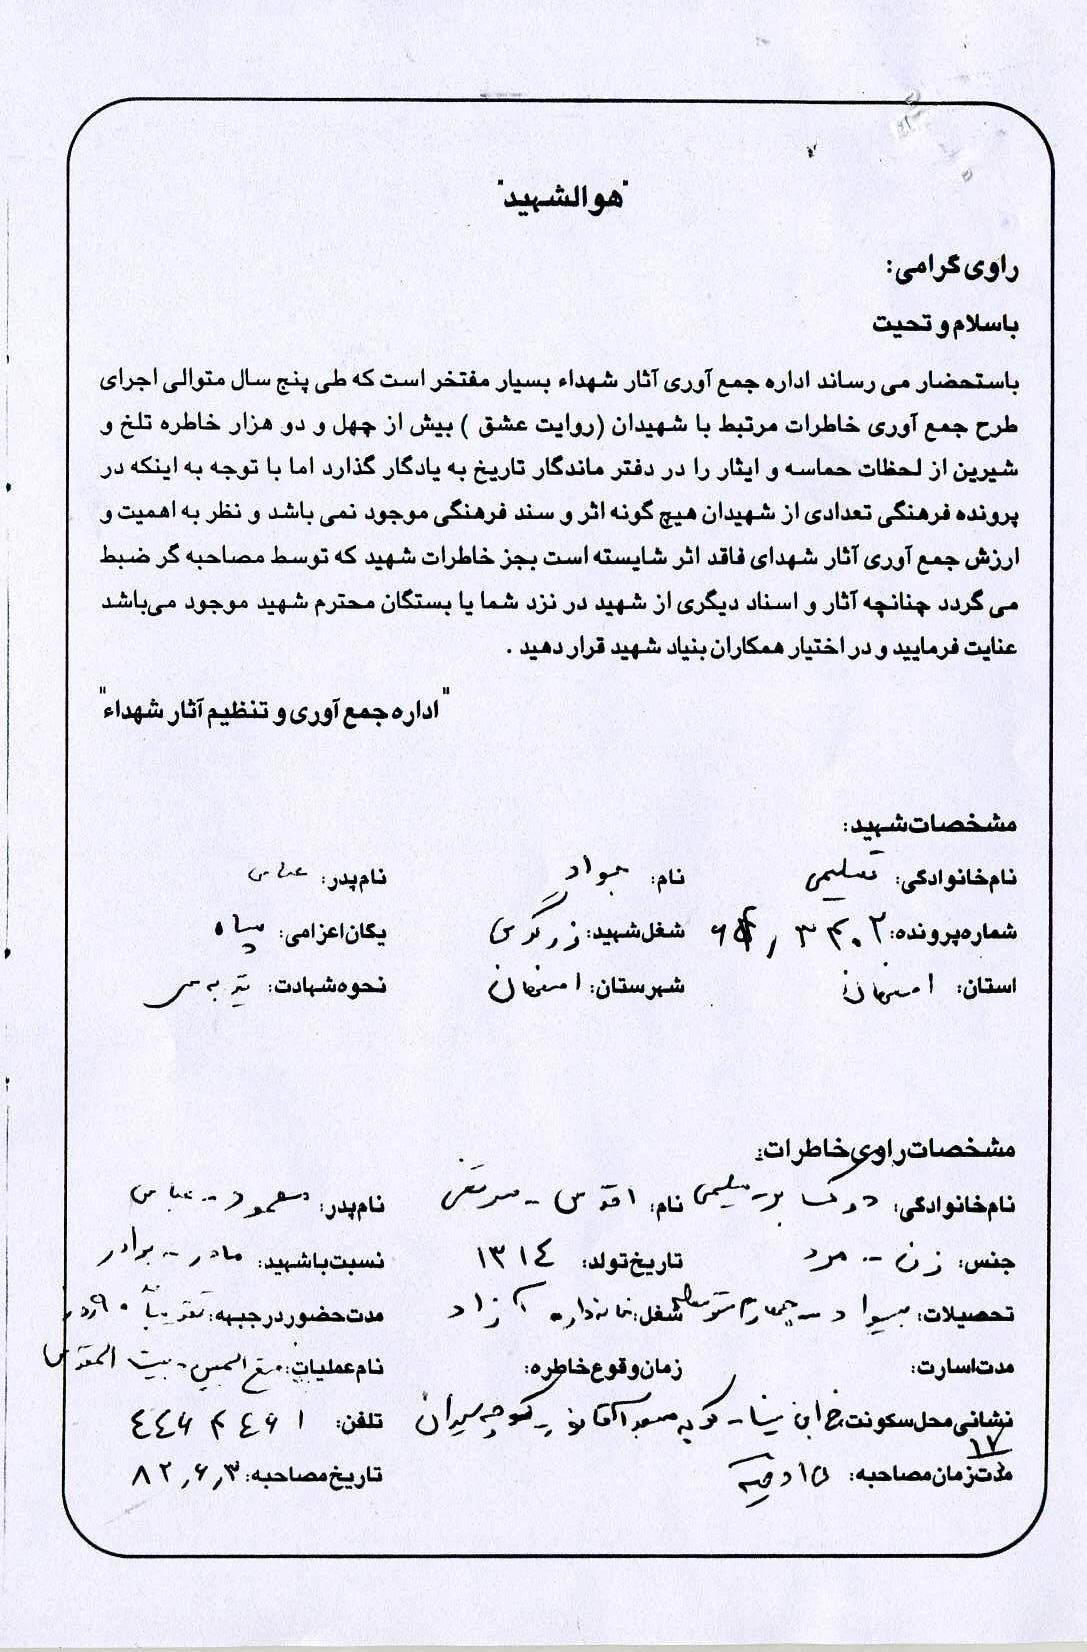 "هوالشهید"
راوی گرامی:
باسلام و تحیت
باستحضار می رساند اداره جمع آوری آثار شهداء بسیار مفتخر است که طی پنج سال متوالی اجرای
طرح جمع آوری خاطرات مرتبط با شهیدان (روایت عشق ) بیش از چهل و دو هزار خاطره تلخ و
شیرین از لحظات حماسه و ایثار را در دفتر ماندگار تاریخ به یادگار گذارد اما با توجه به اینکه در
پرونده فرهنگی تعدادی از شهیدان هیچ گونه اثر و سند فرهنگی موجود نمی باشد و نظر به اهمیت و
ارزش جمع آوری آثار شهدای فاقد اثر شایسته است بجز خاطرات شهید که توسط مصاحبه گر ضبط
می گردد چنانچه آثار و اسناد دیگری از شهید در نزد شما یا بستگان محترم شهید موجود می‌باشد
عنایت فرمایید و در اختیار همکاران بنیاد شهید قرار دهید .
"اداره جمع آوری و تنظیم آثار شهداء"
مشخصات شهید:
نام خانوادگی: تسلیمی نام: جواد نام پدر: عباس
شماره پرونده: شغل شهید: زرگری یگان اعزامی: سپاه
استان: اصفهان شهرستان: اصفهان نحوه شهادت:
مشخصات راوی خاطرات:
نام خانوادگی: نام: اقدس - مرتضی نام پدر: محمود - عباس
جنس: زن - مرد تاریخ تولد: ۱۳۱۴ نسبت با شهید: مادر - برادر
تحصیلات: بیسواد - چهارم متوسطه شغل: خانه دار، آزاد مدت حضور در جبهه: تقریباً ۹۰ روز
مدت اسارت: زمان وقوع خاطره: نام عملیات: فتح المبین - بیت المقدس
نشانی محل سکونت: خ ابن سینا - تلفن: ۴۴۶۳۴۶۱
۱۷
مدت زمان مصاحبه: دقیقه تاریخ مصاحبه: ۸۲٫۶٫۳